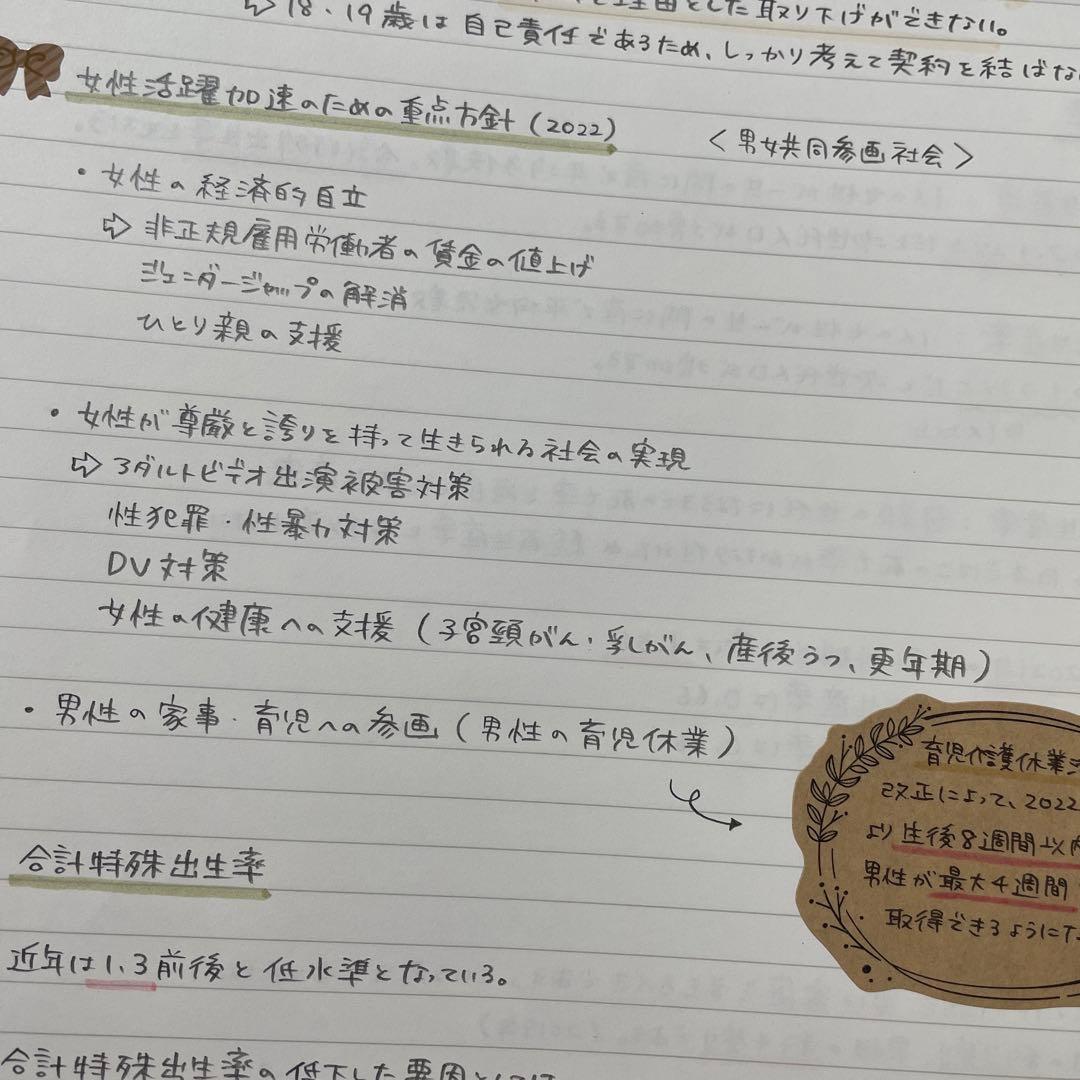 理由とした取り下げができない。
⇨ 18、19歳は自己責任であるため、しっかり考えて契約を結ばな
女性活躍加速のための重点方針(2022)
<男女共同参画社会>
・女性の経済的自立
⇨ 非正規雇用労働者の賃金の値上げ
ジェンダーギャップの解消
ひとり親の支援
・女性が尊厳と誇りを持って生きられる社会の実現
⇨ アダルトビデオ出演被害対策
性犯罪・性暴力対策
DV対策
女性の健康への支援(子宮頸がん・乳がん、産後うつ、更年期)
・男性の家事・育児への参画(男性の育児休業)
育児介護休業法
改正によって、2022
より生後8週間以内
男性が最大4週間
取得できるようにな
合計特殊出生率
近年は1.3前後と低水準となっている。
合計特殊出生率の低下した要因としては